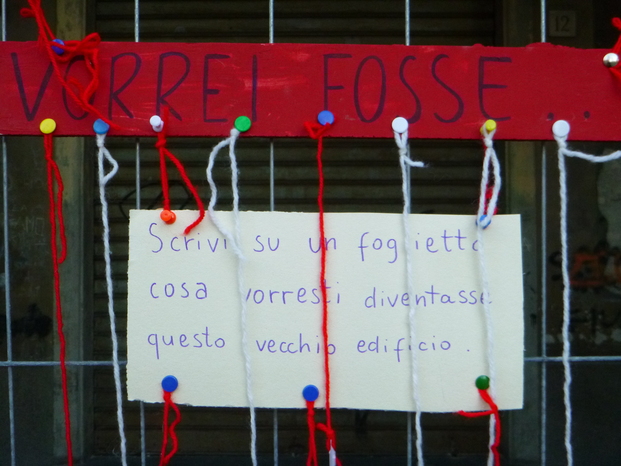 VORREI FOSSE...
Scrivi su un foglietto
cosa vorresti diventasse
questo vecchio edificio.
12